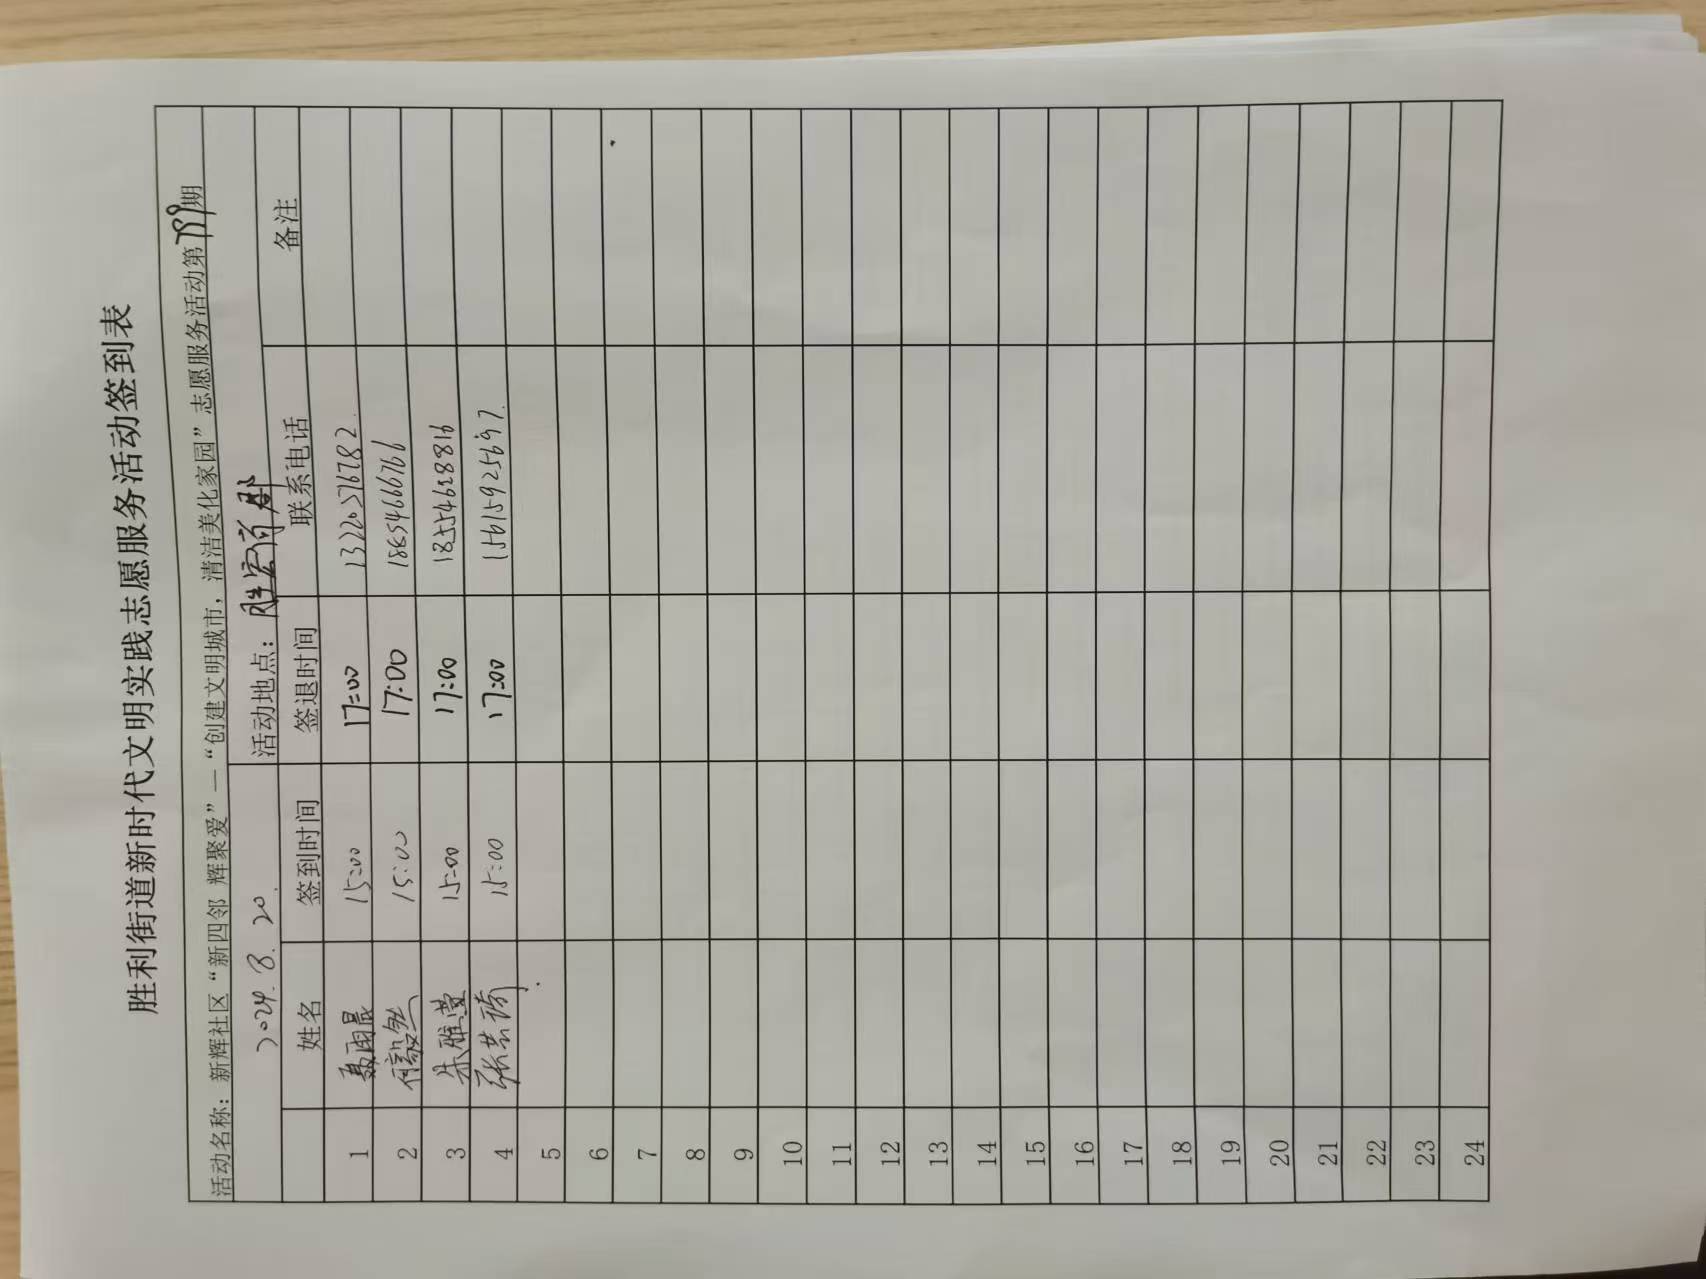 胜利街道新时代文明实践志愿服务活动签到表
活动名称：新辉社区“新四邻 辉聚爱”—“创建文明城市，清洁美化家园”志愿服务活动第799期
2024.8.20. 活动地点：胜宏
姓名 签到时间 签退时间 联系电话 备注
1 聂雨晨 15:00 17:00 13220576782
2 15:00 17:00
3 朱雅萱 15:00 17:00 18554628816
4 张芸琦 15:00 17:00 15615925697
5
6
7
8
9
10
11
12
13
14
15
16
17
18
19
20
21
22
23
24